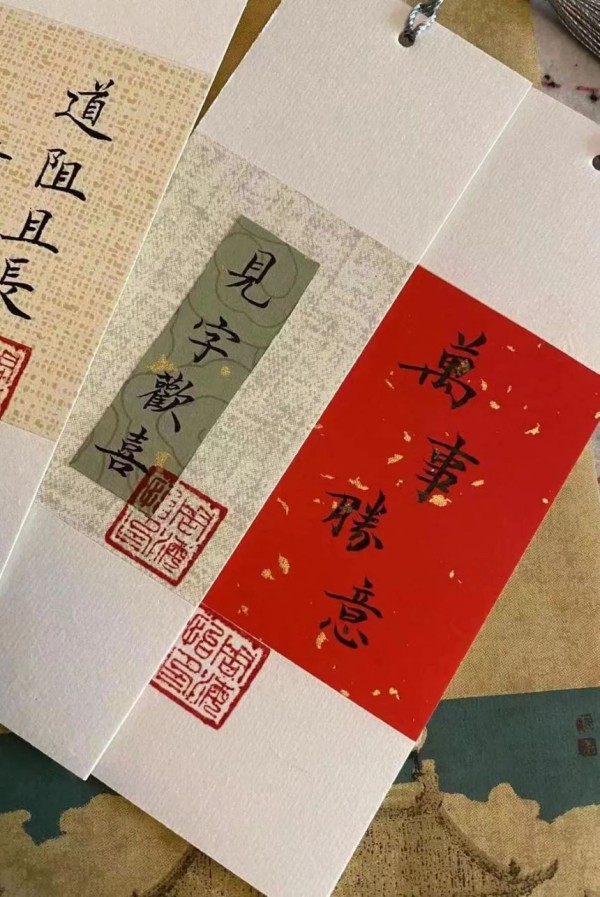 道阻且長
見字歡喜
萬事勝意